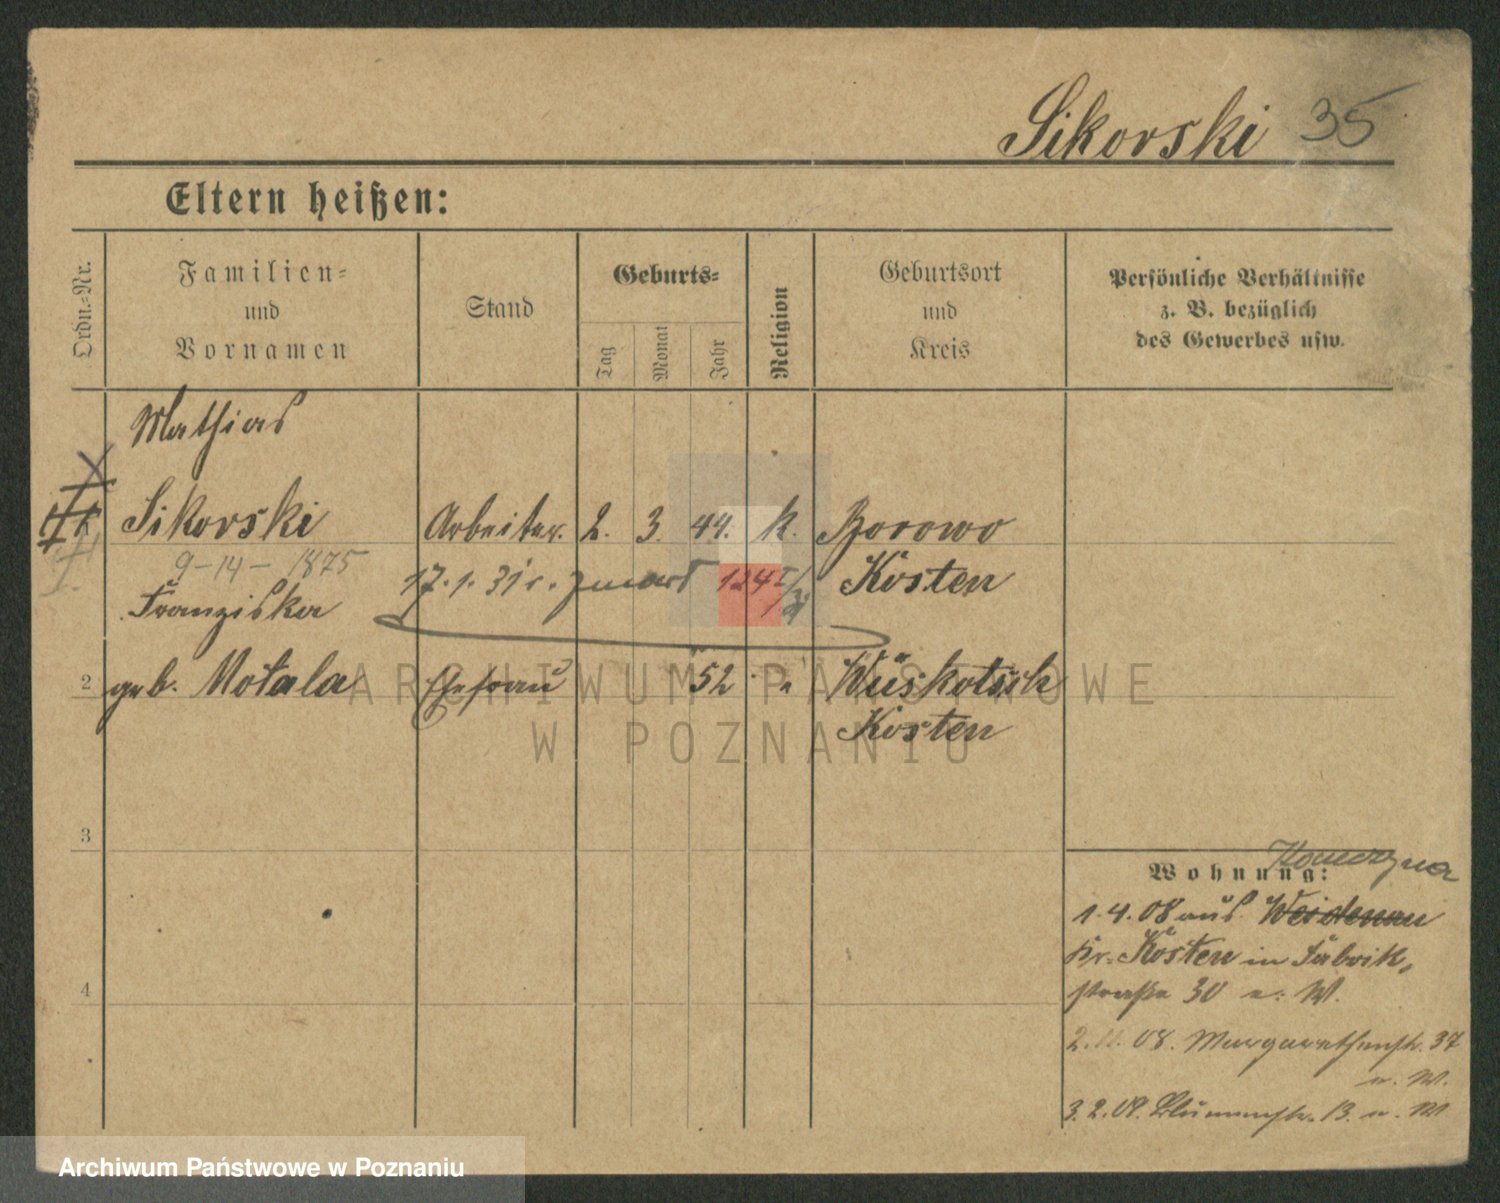 Sikorski 35
Eltern heißen:
Ordn.-Nr.
Familien-
und
Vornamen
Stand
Geburts-
Tag
Monat
Jahr
Religion
Geburtsort
und
Kreis
Persönliche Verhältnisse
z. B. bezüglich
des Gewerbes usw.
Mathias
Sikorski Arbeiter. 2. 3. 49. k. Borowo
9-14-1875
17.1.31 Kosten
Franziska
2 geb. Motala Ehefrau 52 " Wüskotsch
Kosten
3
4
Wohnung:
1.4.08 aus Weidenau
Kr. Kosten in Fabrik-
straße 30 b. W.
08. Margarethenstr. 37
3.2.09. Blumenstr. 13.
ARCHIWUM PAŃSTWOWE
W POZNANIU
Archiwum Państwowe w Poznaniu